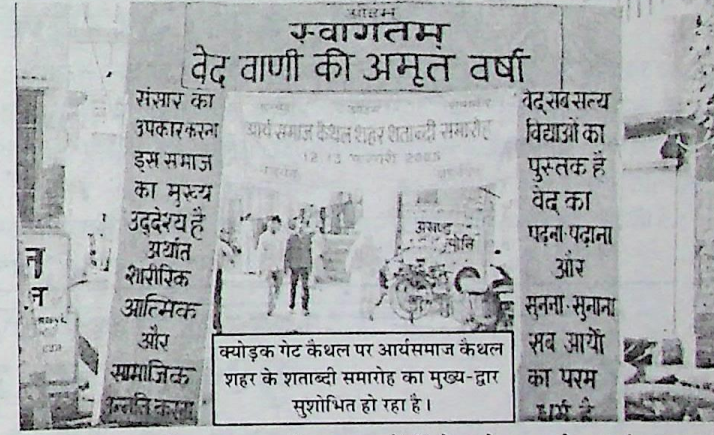 ओ३म
स्वागतम्
वेद वाणी की अमृत वर्षा
संसार का
उपकार करना
इस समाज
का मुख्य
उद्देश्य है
अर्थात
शारीरिक
आत्मिक
और
सामाजिक
उन्नति करना
आर्य समाज कैथल शहर शताब्दी समारोह
12 13 फरवरी 2005
वेद सब सत्य
विद्याओं का
पुस्तक है
वेद का
पढ़ना-पढ़ाना
और
सुनना-सुनाना
सब आर्यो
का परम
धर्म है
क्योड़क गेट कैथल पर आर्यसमाज कैथल
शहर के शताब्दी समारोह का मुख्य-द्वार
सुशोभित हो रहा है।